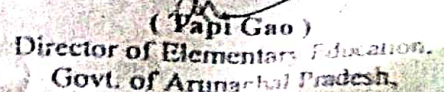 ( Tapi Gao )
Director of Elementary Education,
Govt. of Arunachal Pradesh,